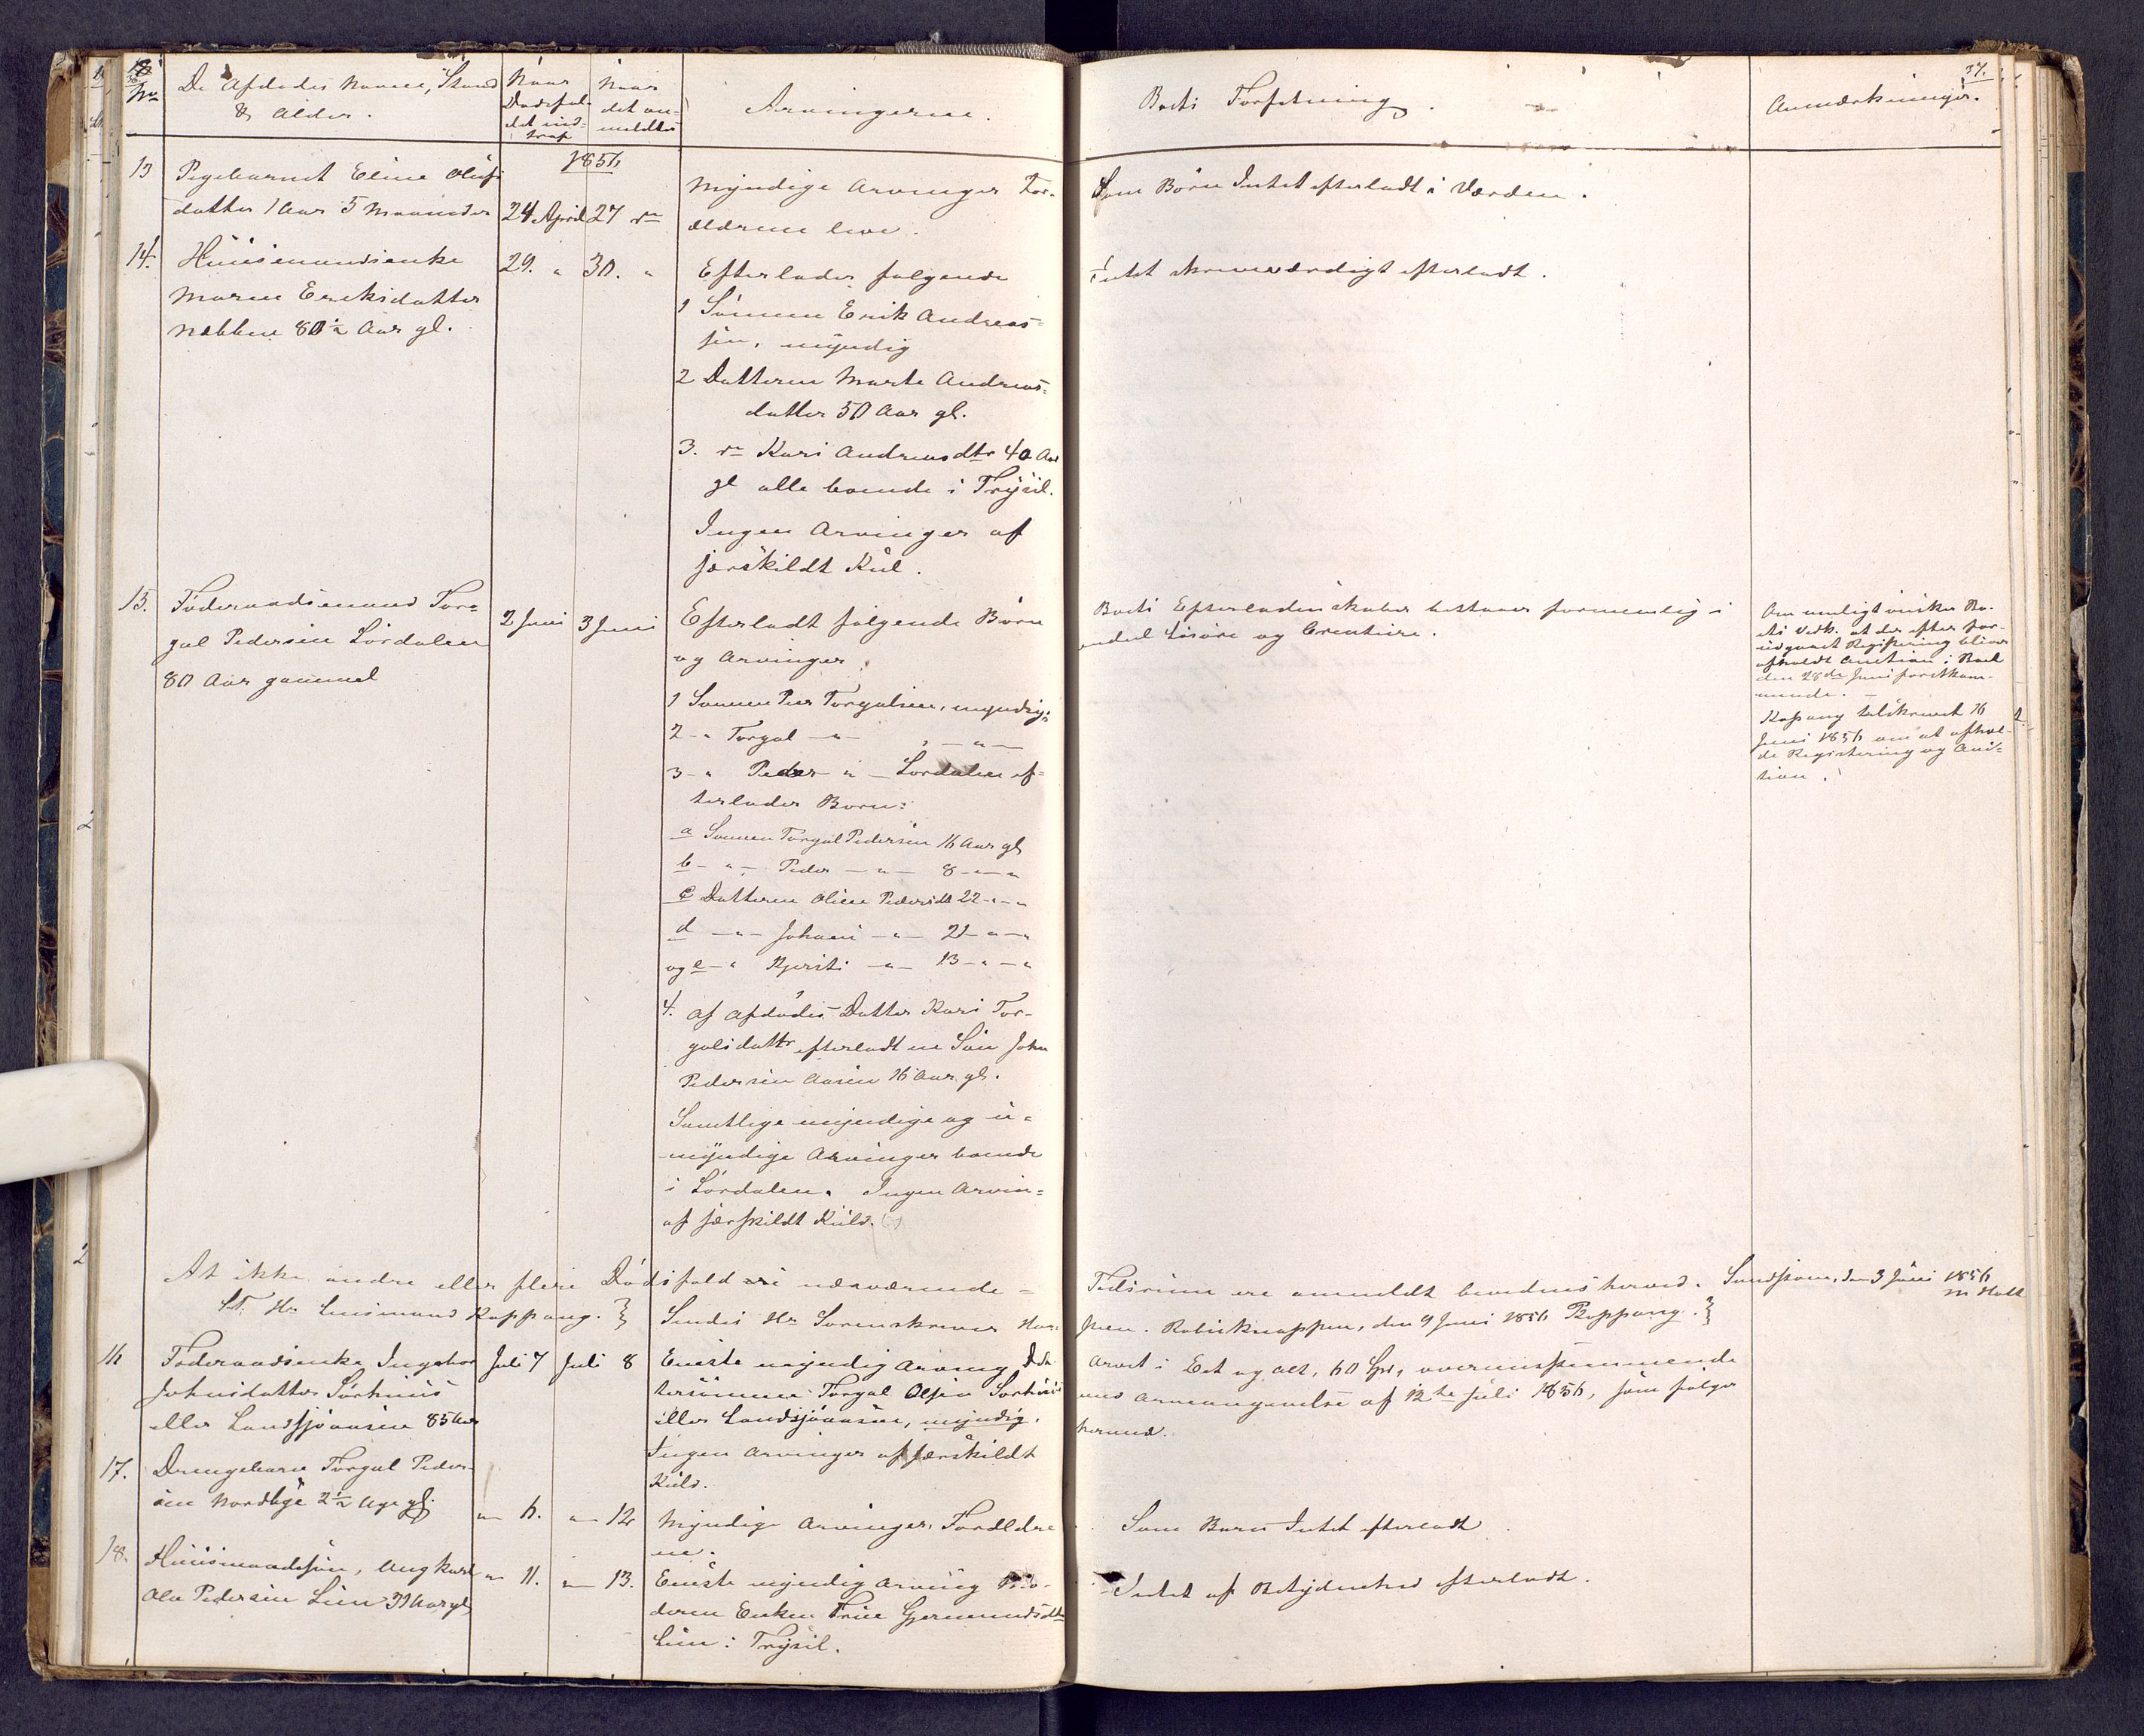 No
De Afdødes Navne, Stand
& Alder.
Naar
Dødsfal-
det ind-
traf
Naar
det an-
meldtes
Arvingerne.
Boets Forfatning.
Anmærkninger.
37.
1856
13
Pigebarnet Eline Olufs
datter 1 Aar 5 Maaneder
24 April
27 do
Myndige Arvinger For-
ældrene leve.
Som Børn Intet efterladt i Værden.
14.
Huusmandsenke
Maren Eriksdatter
Nebben 80½ Aar gl.
29. "
30. "
Efterlader følgende
1 Sønnen Erik Andreas-
sen, myndig
2 Datteren Marte Andreas-
datter 50 Aar gl.
3. do Kari Andreasdtr 40 Aar
gl alle boende i Trysil.
Ingen Arvinger af
særskildt Kul.
Intet skriveværdigt efterladt.
15.
Føderaadsmand Tor-
gal Pedersen Lørdalen
80 Aar gammel
2 Juni
3 Juni
Efterladt følgende Børn
og Arvinger
1 Sønnen Per Torgalsen, myndig.
2 - " Torgal - " - , - " -
3 - " Peder - " - Lørdalen ef-
terlader Børn:
a Sønnen Torgal Pedersen 16 Aar gl
b - " - Peder - " - 8 - " - "
c Datteren Oline Pedersdtr 22 - " - "
d - " - Johani - " - 21 - " - "
og e - " Kjersti - " - 13 - " - "
4. af Afdødes Datter Kari Tor-
galsdattr efterladt en Søn John
Pedersen Aasen 16 Aar gl.
Samtlige myndige og u-
myndige Arvinger boende
i Lørdalen. Ingen Arvin-
af særskildt Kuld.
Boets Efterladenskaber bestaaer fornemlig i
endeel Løsøre og Creature.
den 28de Juni førstkom-
mende. -
Kopang tilskrevet 16
Juni 1856 om at afhol-
de Registering og Auc-
tion.
At ikke andre eller flere Dødsfald i nærværende
Tidsrum ere anmeldt bevidnes herved. Sundstrøm, den 3 Juni 1856
M Holt
ST. Hr Lensmand Koppang.
Sendes Hr Sorenskriver
den 9 Juni 1856 Koppang.
16
Føderaadsenke Ingebor
Johnsdatter Sørhuus
eller Landsjøaasen 85 Aar
Juli 7
Juli 8
Eneste myndig Arving Dat-
tersønnen Torgal Olsen Sørhuus
eller Landsjøaasen, myndig.
Ingen Arvinger af særskildt
Kuld.
Arvet i Eet og Alt, 60 Spd, overensstemmende
med Arveangivelse af 12te Juli 1856, som følger
herved.
17.
Drengebarn Torgal Peder-
sen Nordbye 2½ Uge gl.
" 6.
" 12
Myndige Arvinger, Forældre
ne.
Som Barn Intet efterladt
18.
Huusmandssøn, Ungkarl
Ole Pedersen Lien 31 Aar gl
" 11.
" 13.
Eneste myndig Arving Mo-
deren Enken Trine Gjermundsdtr
Lien i Trysil.
Intet af Betydenhed efterladt.